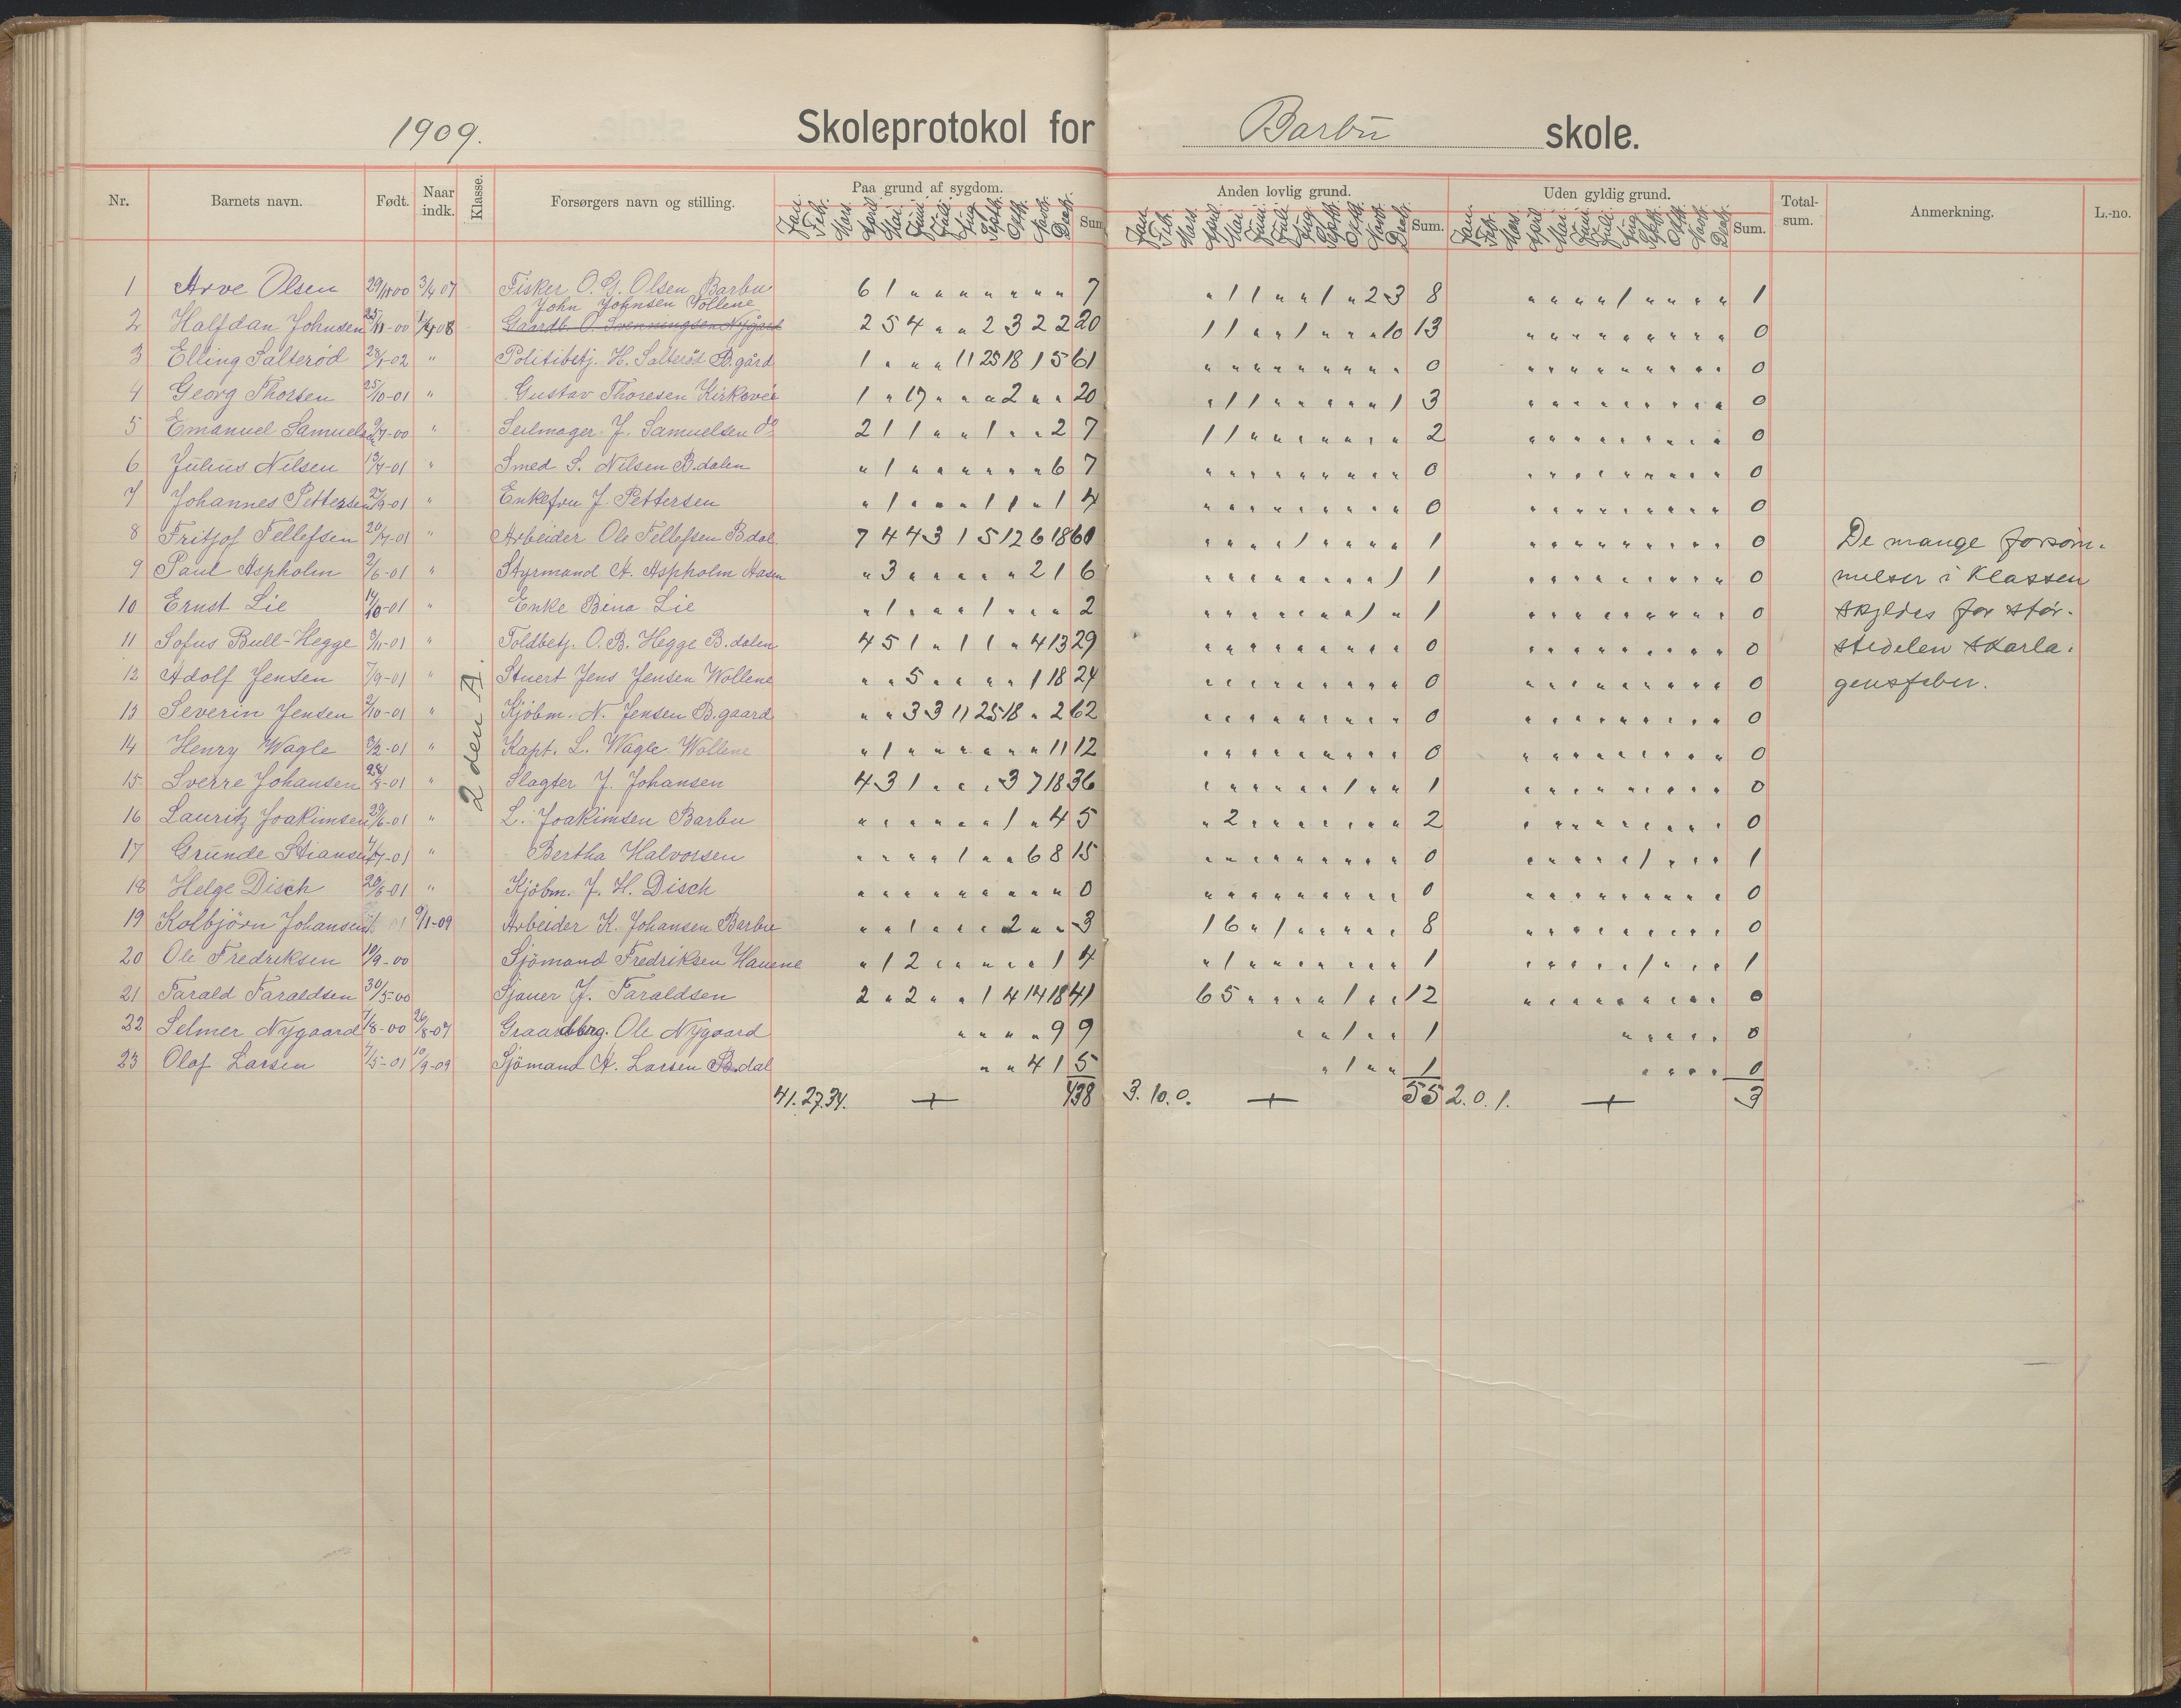 1909. Skoleprotokol for Barbu skole.
Nr. Barnets navn. Født. Naar indk. Klasse. Forsørgers navn og stilling. Paa grund af sygdom. Anden lovlig grund. Uden gyldig grund. Total-sum. Anmerkning. L.-no.
Jan. Feb. Mars. April. Mai. Juni. Juli. Aug. Septb. Oktb. Novb. Decb. Sum Jan. Feb. Mars. April. Mai. Juni. Juli. Aug. Septb. Oktb. Novb. Decb. Sum. Jan. Feb. Mars. April. Mai. Juni. Juli. Aug. Septb. Oktb. Novb. Decb. Sum.
2 den A.
1 Arve Olsen 29/11 00 3/4 07 Fisker O. G. Olsen Barbu 6 1 " " " " " " " 7 " 1 1 " " 1 " 2 3 8 " " " " 1 " " " " 1
John Johnsen Vollene
2 Halfdan Johnsen 25/11-00 1/4 08 Gaardb. O. Svenningsen Nygård 2 5 4 " " 2 3 2 2 20 1 1 " " 1 " " " 10 13 " " " " " " " " " 0
3 Elling Salterød " Politibetj. H. Salteröd B.gård 1 " " " 11 25 18 1 5 61 " " " " " " " " " 0 " " " " " " " " " 0
4 Georg Thorsen 25/10-01 " Gustav Thoresen Kirkevei 1 " 17 " " " 2 " " 20 " 1 1 " " " " " 1 3 " " " " " " " " " 0
5 Emanuel Samuels " Seilmager J. Samuelsen do 2 1 1 " " 1 " " 2 7 1 1 " " " " " " " 2 " " " " " " " " " 0
6 Julius Nilsen 13/7-01 " Smed S. Nilsen B.dalen " 1 " " " " " " 6 7 " " " " " " " " " 0 " " " " " " " " " 0
7 Johannes Pettersen 27/9-01 " Enkefru J. Pettersen " 1 " " " 1 1 " 1 4 " " " " " " " " " 0 " " " " " " " " " 0
8 Fritjof Tellefsen 20/7-01 " Arbeider Ole Tellefsen Bdal 7 4 4 3 1 5 12 6 18 60 " " " " 1 " " " " 1 " " " " " " " " " 0
9 Paul Aspholm 2/6-01 " Styrmand A. Aspholm Aasen " 3 " " " " " 2 1 6 " " " " " " " " 1 1 " " " " " " " " " 0
10 Ernst Lie 14/10-01 " Enke Bina Lie " 1 " " " 1 " " " 2 " " " " " " " 1 " 1 " " " " " " " " " 0
11 Sofus Bull-Hegge 3/11-01 " Toldbetj. O. B. Hegge B.dalen 4 5 1 " 1 1 " 4 13 29 " " " " " " " " " 0 " " " " " " " " " 0
12 Adolf Jensen 7/9-01 " Stuert Jens Jensen Wollene " " 5 " " " " 1 18 24 " " " " " " " " " 0 " " " " " " " " " 0
13 Severin Jensen 2/10-01 " Kjöbm. N. Jensen B.gaard " " 3 3 11 25 18 " 2 62 " " " " " " " " " 0 " " " " " " " " " 0
14 Henry Wagle 3/2-01 " Kapt. L. Wagle Wollene " 1 " " " " " " 11 12 " " " " " " " " " 0 " " " " " " " " " 0
15 Sverre Johansen 28/8-01 " Slagter J. Johansen 4 3 1 " " " 3 7 18 36 " " " " " " 1 " " 1 " " " " " " " " " 0
16 Lauritz Joakimsen 29/6-01 " L. Joakimsen Barbu " " " " " " 1 " 4 5 " 2 " " " " " " " 2 " " " " " " " " " 0
17 Grunde Stiansen " Bertha Halvorsen " " " " 1 " " 6 8 15 " " " " " " " " " 0 " " " " " 1 " " " 1
18 Helge Disch 20/6-01 " Kjöbm. J. H. Disch " " " " " " " " " 0 " " " " " " " " " 0 " " " " " " " " " 0
19 Kolbjörn Johansen 9/1-09 Arbeider K. Johansen Barbu " " 1 " " " 2 " " 3 1 6 " 1 " " " " " 8 " " " " " " " " " 0
20 Ole Fredriksen 10/9-00 Sjömand Fredriksen Hauene " 1 2 " " " " " 1 4 " 1 " " " " " " " 1 " " " " " 1 " " " 1
21 Tarald Taraldsen 30/5-00 Sjauer J. Taraldsen 2 " 2 " " 1 4 14 18 41 6 5 " " " " 1 " " 12 " " " " " " " " " 0
22 Selmer Nygaard 7/8-00 26/8-07 Graardbrg. Ole Nygaard " " " " 9 9 " " 1 " " 1 " " " " " 0
23 Olaf Larsen 7/5-01 10/9-09 Sjömand A. Larsen B.dal " " 4 1 5 " 1 " " 1 " " " " 0
41. 27. 34. + 438 3. 10. 0. + 55 2. 0. 1. + 3
De mange forsöm-
melser i Klassen
skyldes for stör-
stedelen skarla-
gensfeber.